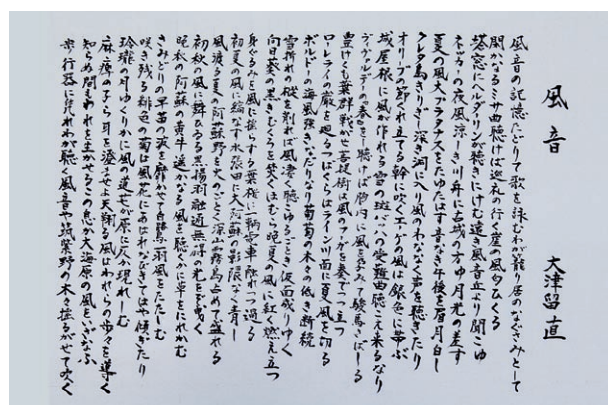 風音
大津留直
風音の記憶たどりて歌を詠むわが籠り居のなぐさみとして
聞かなるミサ曲聴けば巡礼の行く崖の風匂ひくる
塔窓にヘルダリンが聴きにけむ遠き風音丘より聞こゆ
ネッカーの夜風涼しき川舟に古城の方ゆ月光の差す
夏の風大プラタナスをたゆたはす音なき午後を昼月白し
クレタ島きりぎし深き洞に入り風のわななく声を聴きたり
オリーブの節くれ立てる幹に吹くエーゲの風は銀色に帯ぶ
城屋根に風が作れる雪の斑バッハの受難曲聴こえ来るなり
ヴィヴァルディの「春」をし聴けば胸内に風を孕みて駿馬さばしる
豊けくも葉群戦がせ菩提樹は風のフーガを奏でつつ立つ
ローレライの巌を廻るつばくらはライン川面に夏風を切る
ボルドーの海風強きなだりなり葡萄の木々の低き断続
雪折れの枝を削れば風凄く聴こゆるごとき仮面成りゆく
向日葵の黒きむくろを焚くほむら晩夏の風に紅く燃え立つ
身ぐるみを風に捨てする葉桜に一輌電車触れつつ過る
初夏の風に縮なす水張田に大阿蘇の影限なく青し
風渡る夏の阿蘇野を火のごとく深山霧島占めて盛れる
初秋の風に舞ひゐる黒揚羽融通無碍の光をまとふ
晩秋の阿蘇の黄牛遥かなる風を聴くがに草をにれかむ
さみどりの早苗の波を靡かせて白鷺一羽風をたたくる
咲き残る緋色の菊は風花にあはれなびきてはや傾ぎたり
玲瓏の月ゆくりかに風の蓮華が原に反り現れしむ
麻痺の子ら耳を澄ませよ天翔る風はわれらの歩々を導く
知らぬ間もわれを生かせるこの息が大海原の風をいざなふ
歩行器に凭れわが聴く風音や筑紫野の木々揺るがせて吹く